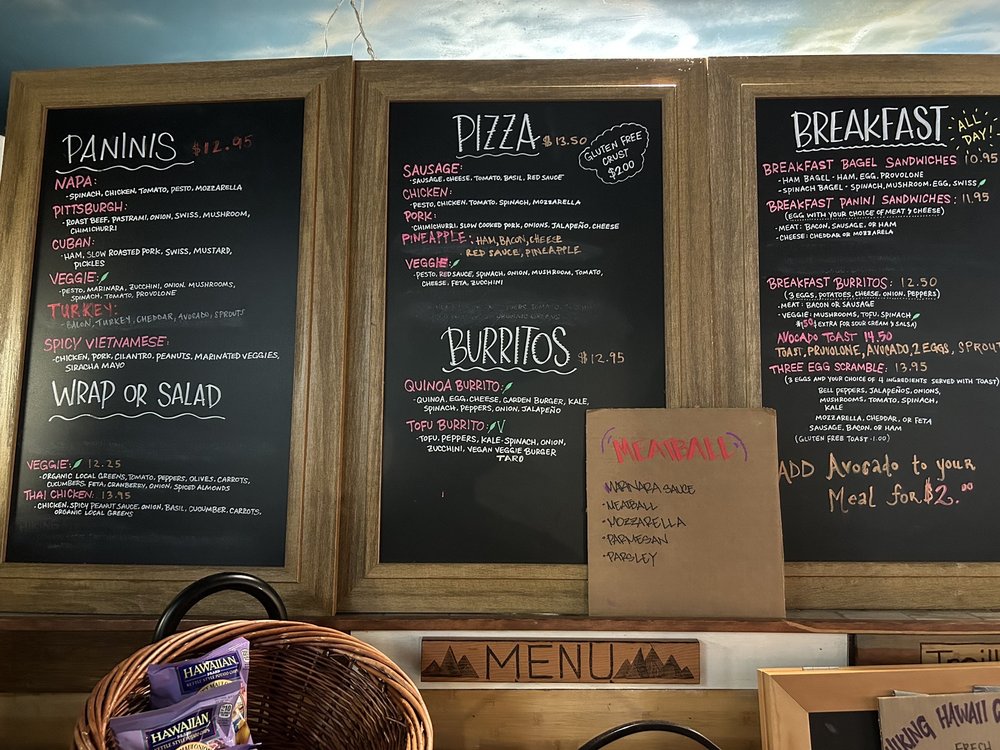 PANINIS $12.95
NAPA:
- SPINACH, CHICKEN, TOMATO, PESTO, MOZZARELLA
PITTSBURGH:
- ROAST BEEF, PASTRAMI, ONION, SWISS, MUSHROOM,
CHIMICHURRI
CUBAN:
- HAM, SLOW ROASTED PORK, SWISS, MUSTARD,
PICKLES
VEGGIE:
- PESTO, MARINARA, ZUCCHINI, ONION, MUSHROOMS,
SPINACH, TOMATO, PROVOLONE
TURKEY:
- BACON, TURKEY, CHEDDAR, AVOCADO, SPROUTS
SPICY VIETNAMESE:
- CHICKEN, PORK, CILANTRO, PEANUTS, MARINATED VEGGIES,
SIRACHA MAYO
WRAP OR SALAD
VEGGIE: 12.25
- ORGANIC LOCAL GREENS, TOMATO, PEPPERS, OLIVES, CARROTS,
CUCUMBERS, FETA, CRANBERRY, ONION, SPICED ALMONDS
THAI CHICKEN: 13.95
- CHICKEN, SPICY PEANUT SAUCE, ONION, BASIL, CUCUMBER, CARROTS,
ORGANIC LOCAL GREENS
PIZZA $13.50
GLUTEN FREE
CRUST
$2.00
SAUSAGE:
- SAUSAGE, CHEESE, TOMATO, BASIL, RED SAUCE
CHICKEN:
- PESTO, CHICKEN, TOMATO, SPINACH, MOZZARELLA
PORK:
- CHIMICHURRI, SLOW COOKED PORK, ONIONS, JALAPEÑO, CHEESE
PINEAPPLE: HAM, BACON, CHEESE
RED SAUCE, PINEAPPLE
VEGGIE:
- PESTO, RED SAUCE, SPINACH, ONION, MUSHROOM, TOMATO,
CHEESE, FETA, ZUCCHINI
BURRITOS $12.95
QUINOA BURRITO:
- QUINOA, EGG, CHEESE, GARDEN BURGER, KALE,
SPINACH, PEPPERS, ONION, JALAPEÑO
TOFU BURRITO: V
- TOFU, PEPPERS, KALE, SPINACH, ONION,
ZUCCHINI, VEGAN VEGGIE BURGER
TARO
(MEATBALL)
MARINARA SAUCE
- MEATBALL
- MOZZARELLA
- PARMESAN
- PARSLEY
BREAKFAST ALL
DAY!
BREAKFAST BAGEL SANDWICHES 10.95
- HAM BAGEL - HAM, EGG, PROVOLONE
- SPINACH BAGEL - SPINACH, MUSHROOM, EGG, SWISS
BREAKFAST PANINI SANDWICHES: 11.95
(EGG WITH YOUR CHOICE OF MEAT & CHEESE)
- MEAT: BACON, SAUSAGE, OR HAM
- CHEESE: CHEDDAR OR MOZZARELA
BREAKFAST BURRITOS: 12.50
(3 EGGS, POTATOES, CHEESE, ONION, PEPPERS)
- MEAT: BACON OR SAUSAGE
- VEGGIE: MUSHROOMS, TOFU, SPINACH
$1.50 EXTRA FOR SOUR CREAM & SALSA)
AVOCADO TOAST 14.50
TOAST, PROVOLONE, AVOCADO, 2 EGGS, SPROUT
THREE EGG SCRAMBLE: 13.95
(3 EGGS AND YOUR CHOICE OF 4 INGREDIENTS SERVED WITH TOAST)
BELL PEPPERS, JALAPEÑOS, ONIONS,
MUSHROOMS, TOMATO, SPINACH,
KALE
MOZZARELLA, CHEDDAR, OR FETA
SAUSAGE, BACON, OR HAM
(GLUTEN FREE TOAST - 1.00)
ADD Avocado to your
Meal for $2.00
MENU
HAWAIIAN
BRAND
KETTLE STYLE POTATO CHIPS
HAWAIIAN
BRAND
KETTLE STYLE POTATO CHIPS
HAWAII
FRESH